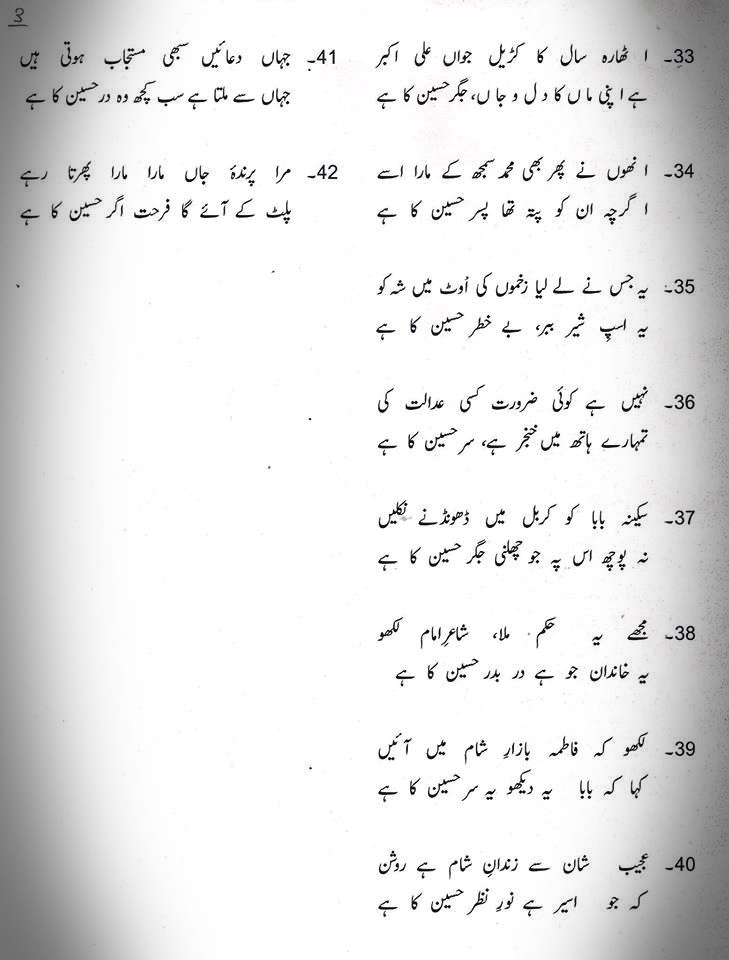 3
33۔ اٹھارہ سال کا کڑیل جواں علی اکبر
ہے اپنی ماں کا دل و جاں، جگر حسین کا ہے
34۔ انھوں نے پھر بھی محمد سمجھ کے مارا اسے
اگرچہ ان کو پتہ تھا پسر حسین کا ہے
35۔ یہ جس نے لے لیا زخموں کی اُوٹ میں شہ کو
یہ اسپِ شیر ببر، بے خطر حسین کا ہے
36۔ نہیں ہے کوئی ضرورت کسی عدالت کی
تمہارے ہاتھ میں خنجر ہے، سر حسین کا ہے
37۔ سکینہ بابا کو کربل میں ڈھونڈنے نکلیں
نہ پوچھ اس پہ جو چھلنی جگر حسین کا ہے
38۔ مجھے یہ حکم ملا، شاعرِ امام لکھو
یہ خاندان جو ہے در بدر حسین کا ہے
39۔ لکھو کہ فاطمہ بازارِ شام میں آئیں
کہا کہ بابا یہ دیکھو یہ سر حسین کا ہے
40۔ عجیب شان سے زندانِ شام ہے روشن
کہ جو اسیر ہے نورِ نظر حسین کا ہے
41۔ جہاں دعائیں سبھی مستجاب ہوتی ہیں
جہاں سے ملتا ہے سب کچھ وہ در حسین کا ہے
42۔ مرا پرندۂ جاں مارا مارا پھرتا رہے
پلٹ کے آئے گا فرحت اگر حسین کا ہے